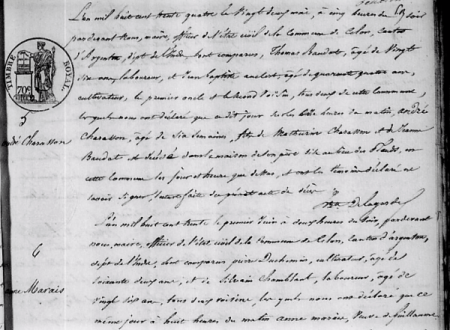 L'an mil huit cent trente quatre le vingt deux mai, à cinq heures du soir
pardevant Nous, maire, officier de l'état civil de la commune de Celon, canton
d'Argenton, dépt de l'Indre, sont comparus, Thomas Baudat, âgé de vingt
six ans, laboureur, et Jean Baptiste, âgé de quarante quatre ans,
cultivateur, le premier oncle et le second voisin, tous deux de cette commune,
lesquels nous ont déclaré que ce dit jour heures du matin, andré
Charasson, âgé de Six Semaines, fils de Mathurin Charasson et de Jeanne
Baudat est décédé dans la maison de son père au lieu des
cette commune les jour et heure que dessus, et ont les témoins déclaré ne
savoir signer, lecture faite du présent acte de décès
Delagarde
L'an mil huit cent trente le premier Juin à deux heures du Soir, pardevant
nous, maire, officier de l'état civil de la Commune de Celon, Canton d'argenton,
dépt de l'Indre, sont comparus pierre Duchemin, cultivateur, âgé de
soixante deux ans, et de Silvain Chamblant, laboureur, âgé de
vingt six ans, tous deux voisins, lesquels nous ont déclaré que ce
même jour à huit heures du matin anne marais, Veuve de Guillaume
TIMBRE ROYAL
5
andré Charasson
6
anne Marais